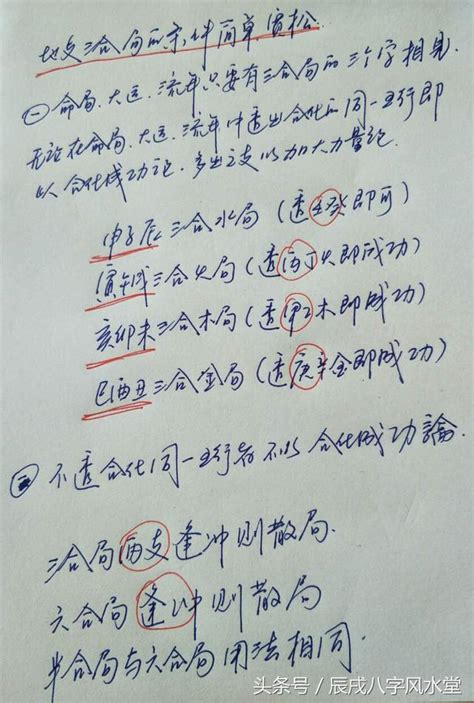 地支三合局的条件简单宽松
㊀命局、大运、流年只要有三合局的三个字相见
无论在命局、大运、流年中透出合化的同一五行即
以合化成功论，多出之支以加大力量论。
申子辰三合水局（透壬癸即可）
寅午戌三合火局（透丙丁火即成功）
亥卯未三合木局（透甲乙木即成功）
巳酉丑三合金局（透庚辛金即成功）
㊁不透合化同一五行者不以合化成功論.
三合局两支逢冲则散局.
六合局逢冲则散局
半合局与六合局用法相同.
头条号/辰戌八字风水堂